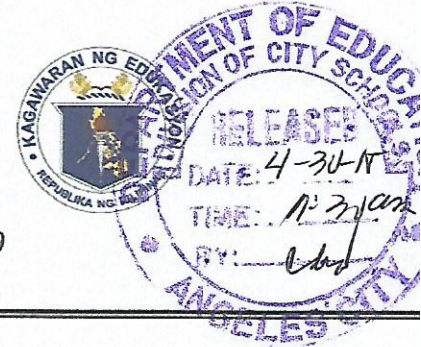 KAGAWARAN NG EDUKASYON
REPUBLIKA NG PILIPINAS
DEPARTMENT OF EDUCATION
DIVISION OF CITY SCHOOLS
RELEASED
DATE:
TIME:
BY:
ANGELES CITY